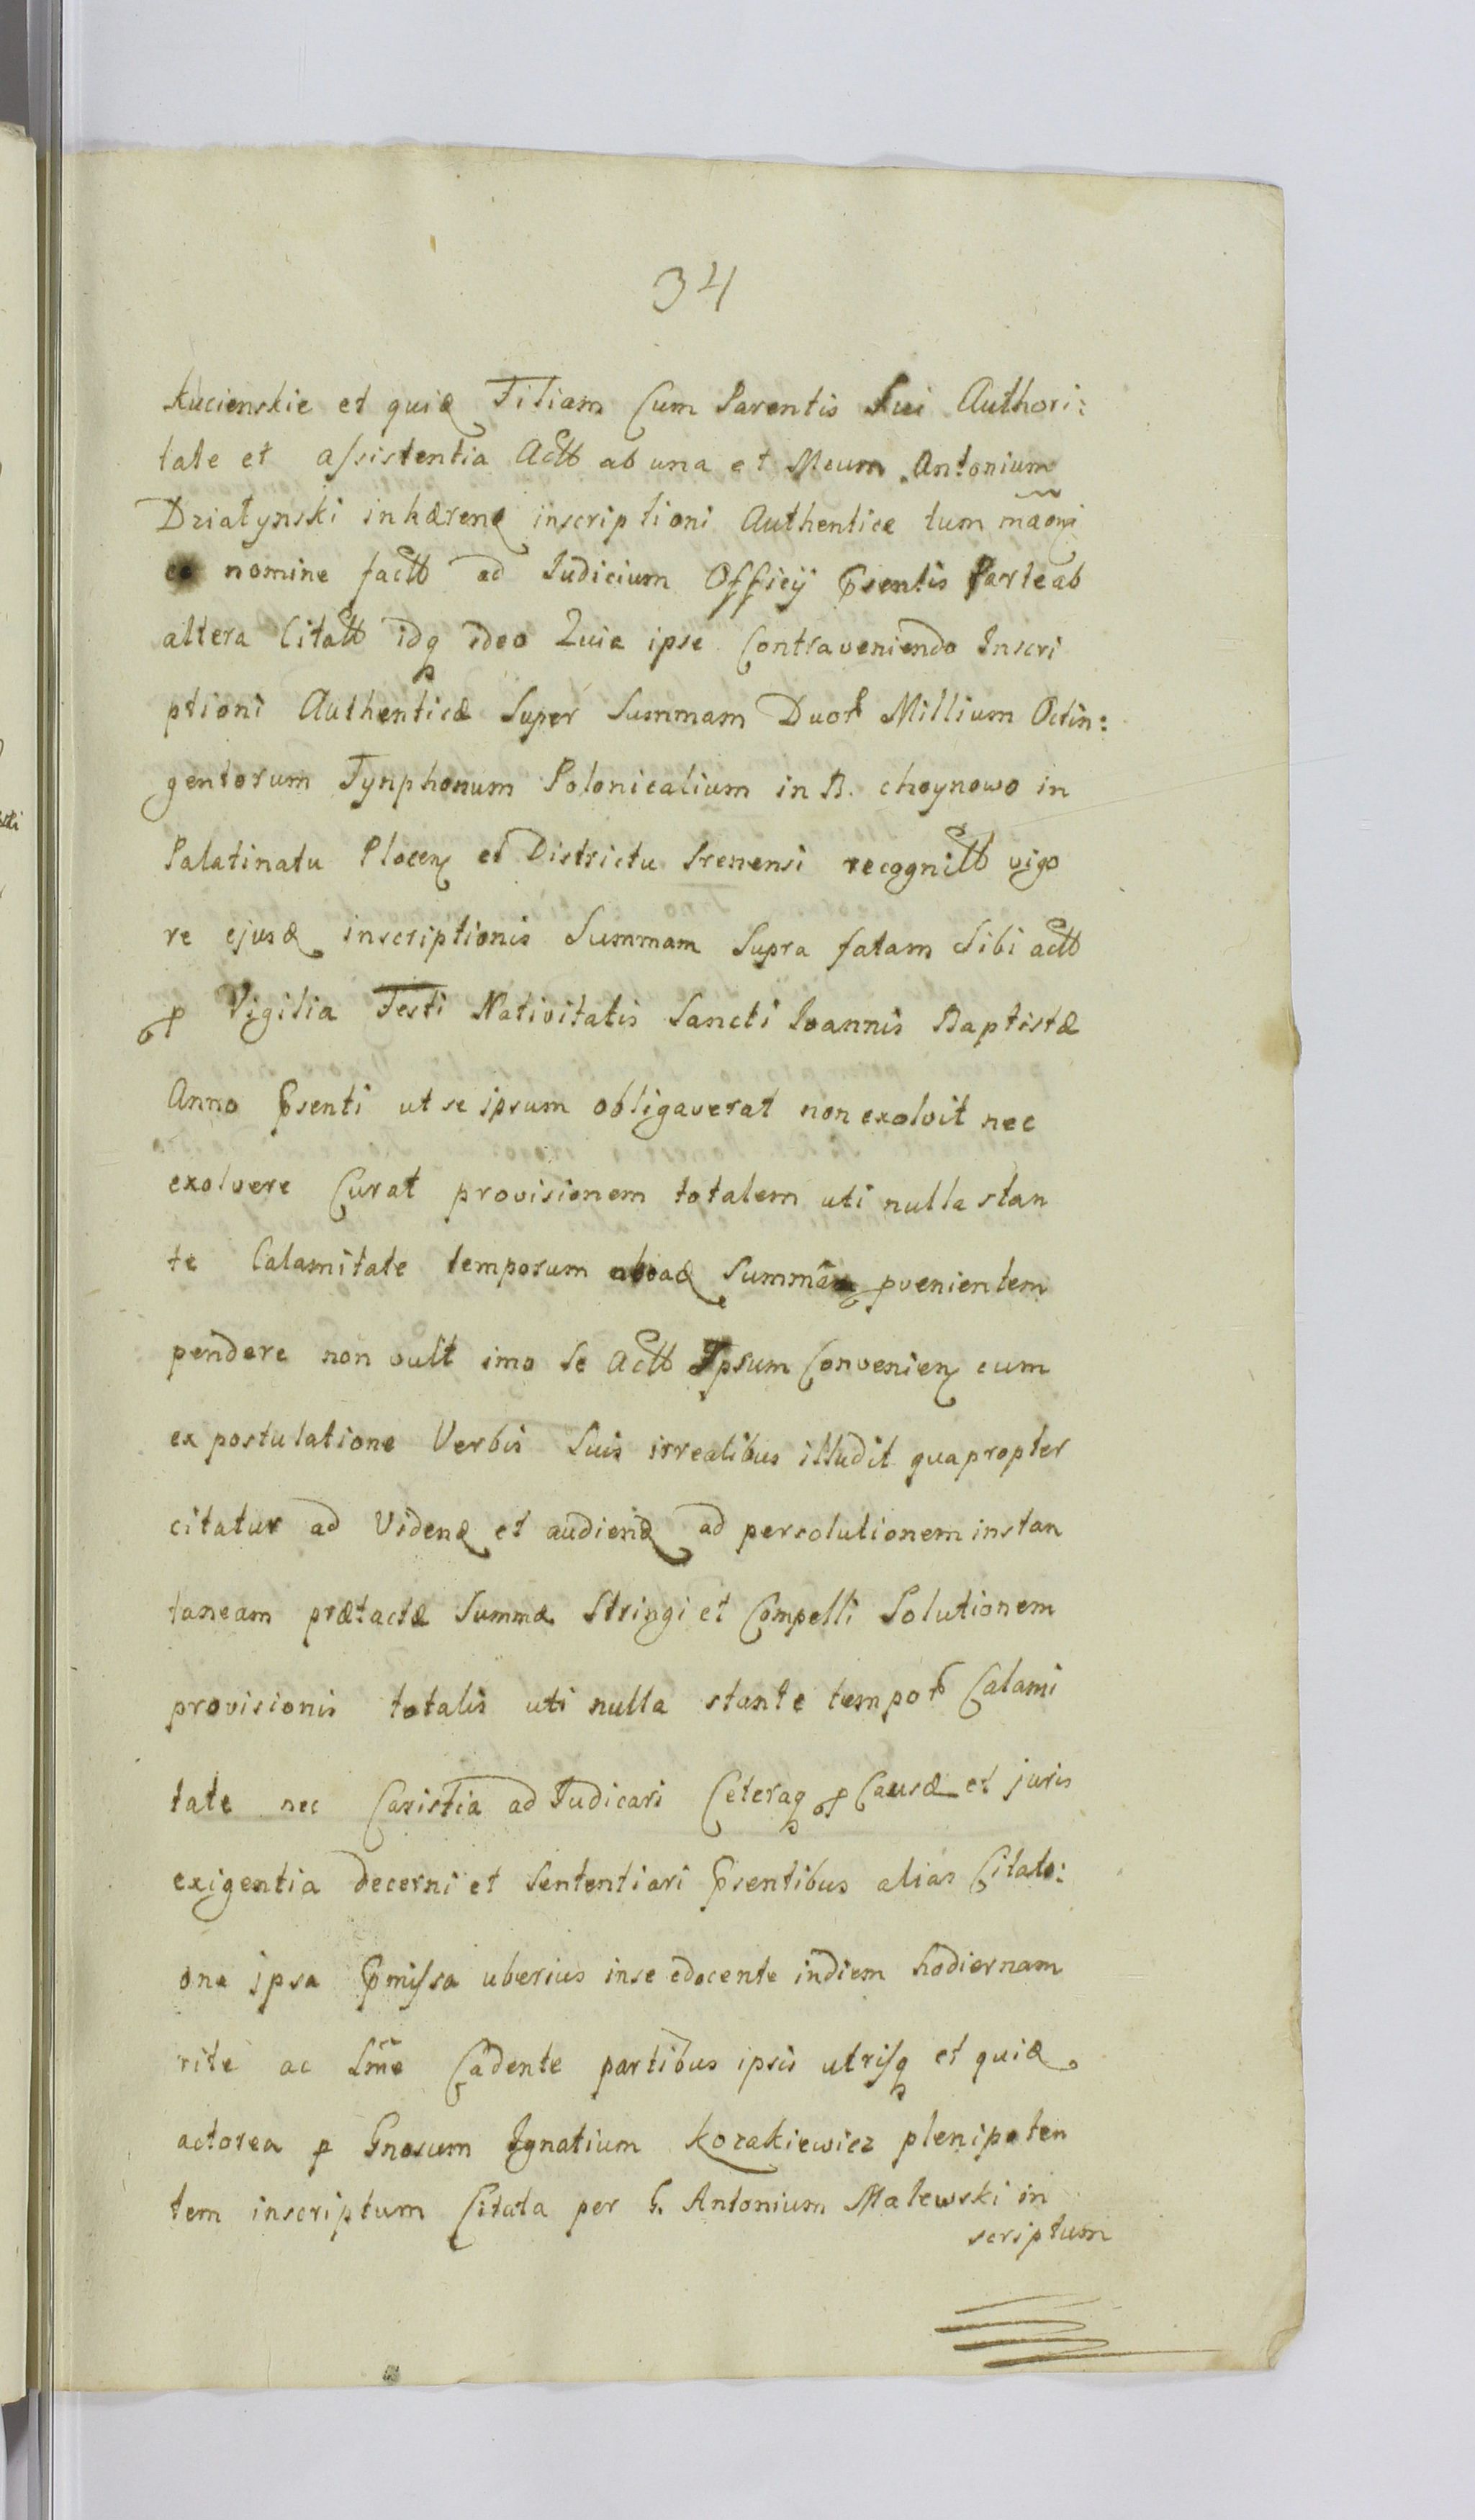 34
kucienskie et quid Filiam Cum Parentis Sui Authori:
tate et assistentia Actt ab una et Meum Antonium
Dziatynski inhærend inscriptioni Authentice tum
nomine factt ad Iudicium Officij Psentis Parte ab
altera Citatt idq ideo Quia ipse Contraveniendo Inscri
ptioni Authenticæ Super Summam Duor Millium Octin:
gentorum Tynphonum Polonicalium in B. choynowo in
Palatinatu Plocen et Districtu Srenensi recognitt vigo
re ejusd inscriptionis Summam Supra fatam Sibi actt
p Vigilia Festi Nativitatis Sancti Ioannis Baptistæ
Anno Psenti ut se ipsum obligaverat non exolvit nec
exolvere Curat provisionem totalem uti nulla stan
te Calamitate temporum abead Summa pvenientem
pendere non vult imo Se Actt Ipsum Convenien cum
expostulatione Verbis Suis irrealibus illudit quapropter
citatur ad Vidend et audiend ad persolutionem instan
taneam prætactæ Summæ Stringi et Compelli Solutionem
provisionis totalis uti nulla stante tempor Calami
tate nec Caristia ad Iudicari Ceteraq p Causæ et juris
exigentia decerni et Sententiari Psentibus alias Citato:
one ipsa Pmissa uberius inse edocente indiem hodiernam
rite ac Lme Cadente partibus ipsis utrisq et quid
actorea p Gnosum Ignatium Kozakiewicz plenipoten
tem inscriptum Citata per G. Antonium Malewski in
scriptum